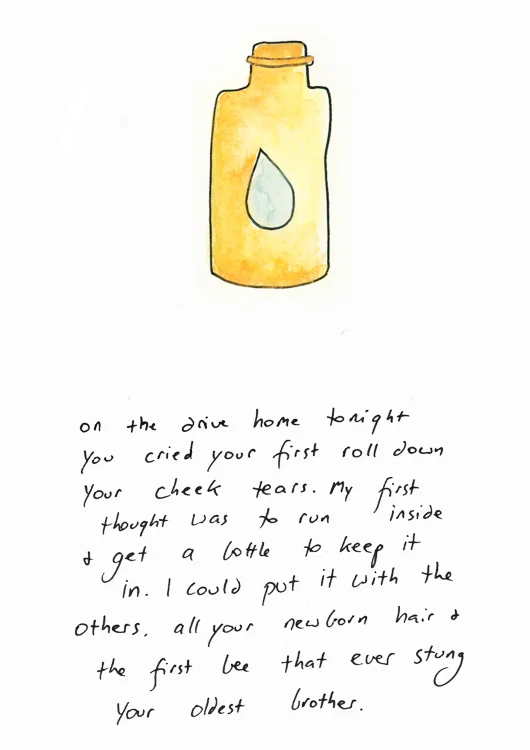 on the drive home tonight
you cried your first roll down
your cheek tears. My first
thought was to run inside
& get a bottle to keep it
in. I could put it with the
others. all your newborn hair &
the first bee that ever stung
your oldest brother.